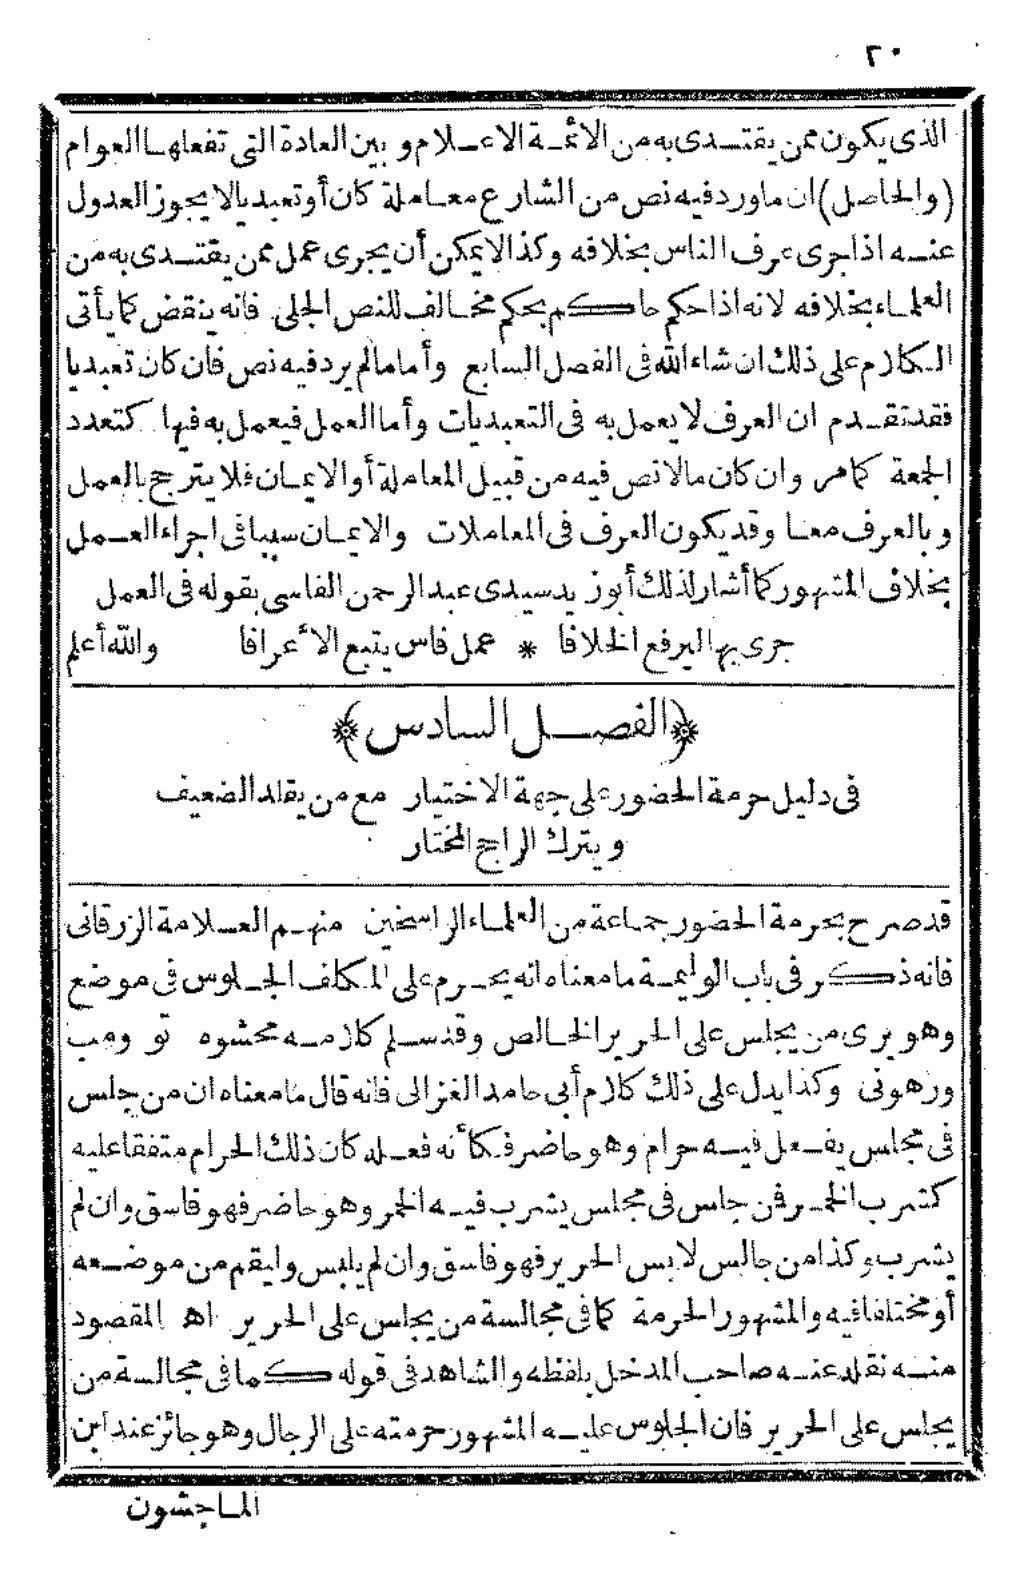 ٢٠
الذى يكون ممن يقتدى به من الائمة الاعلام وبين العادة التى تفعلها العوام
(والحاصل) ان ماورد فيه نص من الشارع معاملة كان أو تعبديا لا يجوز العدول
عنه اذا جرى عرف الناس بخلافه وكذا لا يمكن أن يجرى عمل ممن يقتدى به من
العلماء بخلافه لانه اذا حكم حاكم بحكم مخالف للنص الجلى فانه ينقض كما يأتى
الكلام على ذلك ان شاء الله فى الفصل السابع وأما مالم يرد فيه نص فان كان تعبديا
فقد تقدم ان العرف لا يعمل به فى التعبديات وأما العمل فيعمل به فيها كتعدد
الجمعة كما مر وان كان مالا نص فيه من قبيل المعاملة أو الايمان فلا يترجح بالعمل
وبالعرف معا وقد يكون العرف فى المعاملات والايمان سببا فى اجراء العمل
بخلاف المشهور كما أشار لذلك أبو زيد سيدى عبد الرحمن الفاسى بقوله فى العمل
جرى بها ليرفع الخلافا * عمل فاس يتبع الأعرافا والله أعلم
﴿الفصل السادس﴾
فى دليل حرمة الحضور على جهة الاختيار مع من يقلد الضعيف
ويترك الراجح المختار
قد صرح بحرمة الحضور جماعة من العلماء الراسخين منهم العلامة الزرقانى
فانه ذكر فى باب الوليمة ما معناه انه يحرم على المكلف الجلوس فى موضع
وهو يرى من يجلس على الحرير الخالص وقد سلم كلامه محشوه تو ومب
ورهونى وكذا يدل على ذلك كلام أبى حامد الغزالى فانه قال ما معناه ان من جلس
فى مجلس يفعل فيه حرام وهو حاضر فكأنه فعله كان ذلك الحرام متفقا عليه
كشرب الخمر فمن جلس فى مجلس يشرب فيه الخمر وهو حاضر فهو فاسق وان لم
يشرب وكذا من جالس لابس الحرير فهو فاسق وان لم يلبس وليقم من موضعه
أو مختلفا فيه والمشهور الحرمة كما فى مجالسة من يجلس على الحرير اه المقصود
منه نقله عنه صاحب المدخل بلفظه والشاهد فى قوله كما فى مجالسة من
يجلس على الحرير فان الجلوس عليه المشهور حرمته على الرجال وهو جائز عند ابن
الماجشون